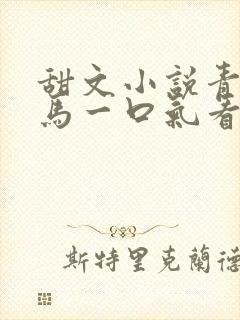 甜文小説青
馬一口氣看
斯特里克蘭德